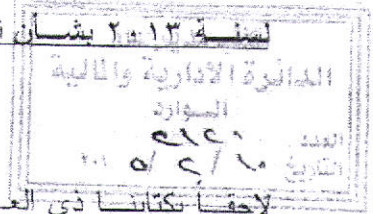 لسنة ٢٠١٣ بشأن
الدائرة الادارية والمالية
الموارد
العدد
التاريخ ١٠ / ٢ / ٥ ٢٠١
لاحقاً بكتابنا ذي العـ